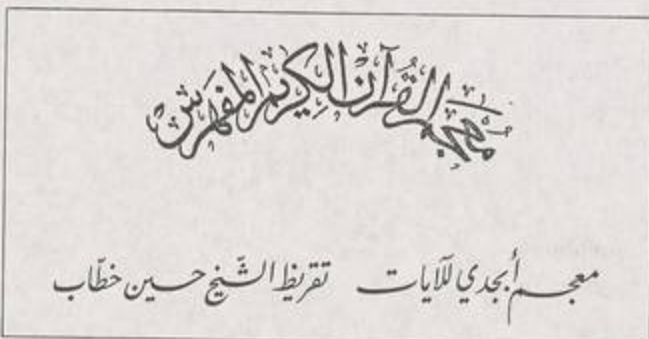 معجم القرآن الكريم المفهرس
معجم أبجدي للآيات تقريظ الشّيخ حسين خطّاب